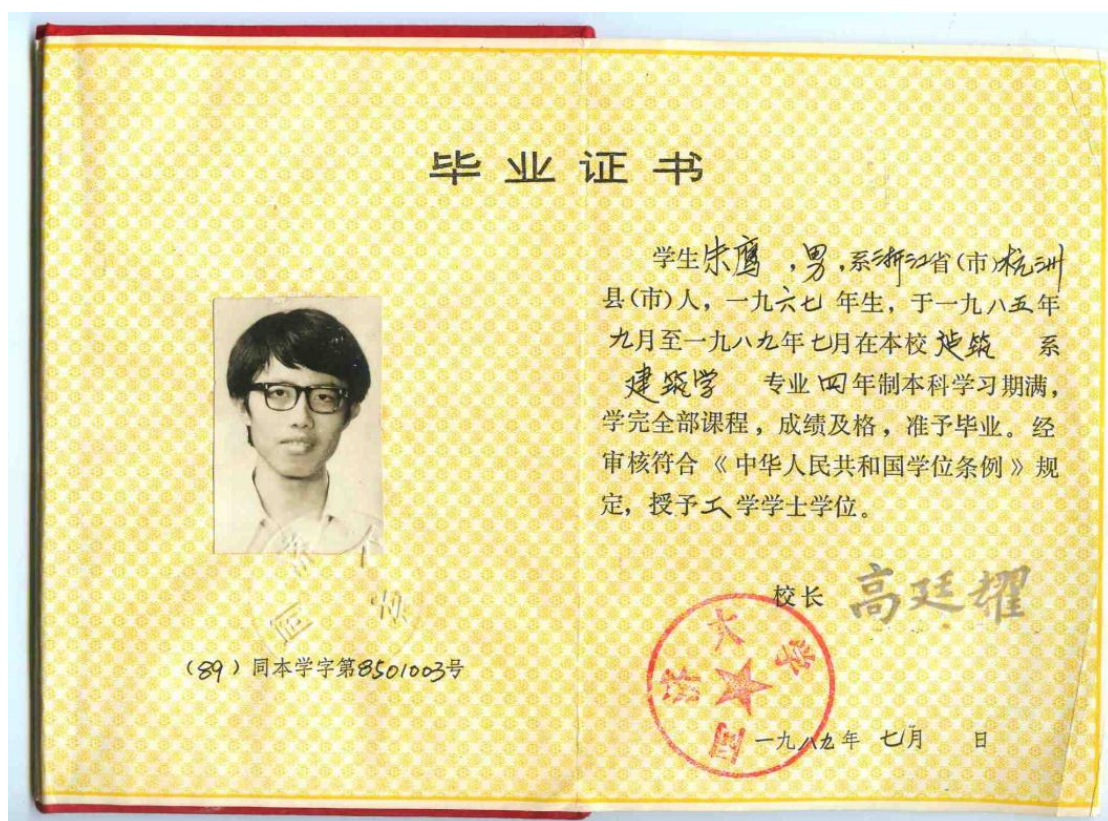 毕业证书
学生朱鹰,男,系浙江省(市)杭州
县(市)人,一九六七年生,于一九八五年
九月至一九八九年七月在本校建筑系
建筑学专业四年制本科学习期满,
学完全部课程,成绩及格,准予毕业。经
审核符合《中华人民共和国学位条例》规
定,授予工学学士学位。
校长 高廷耀
同济大学
一九八九年七月 日
(89)同本学字第8501003号